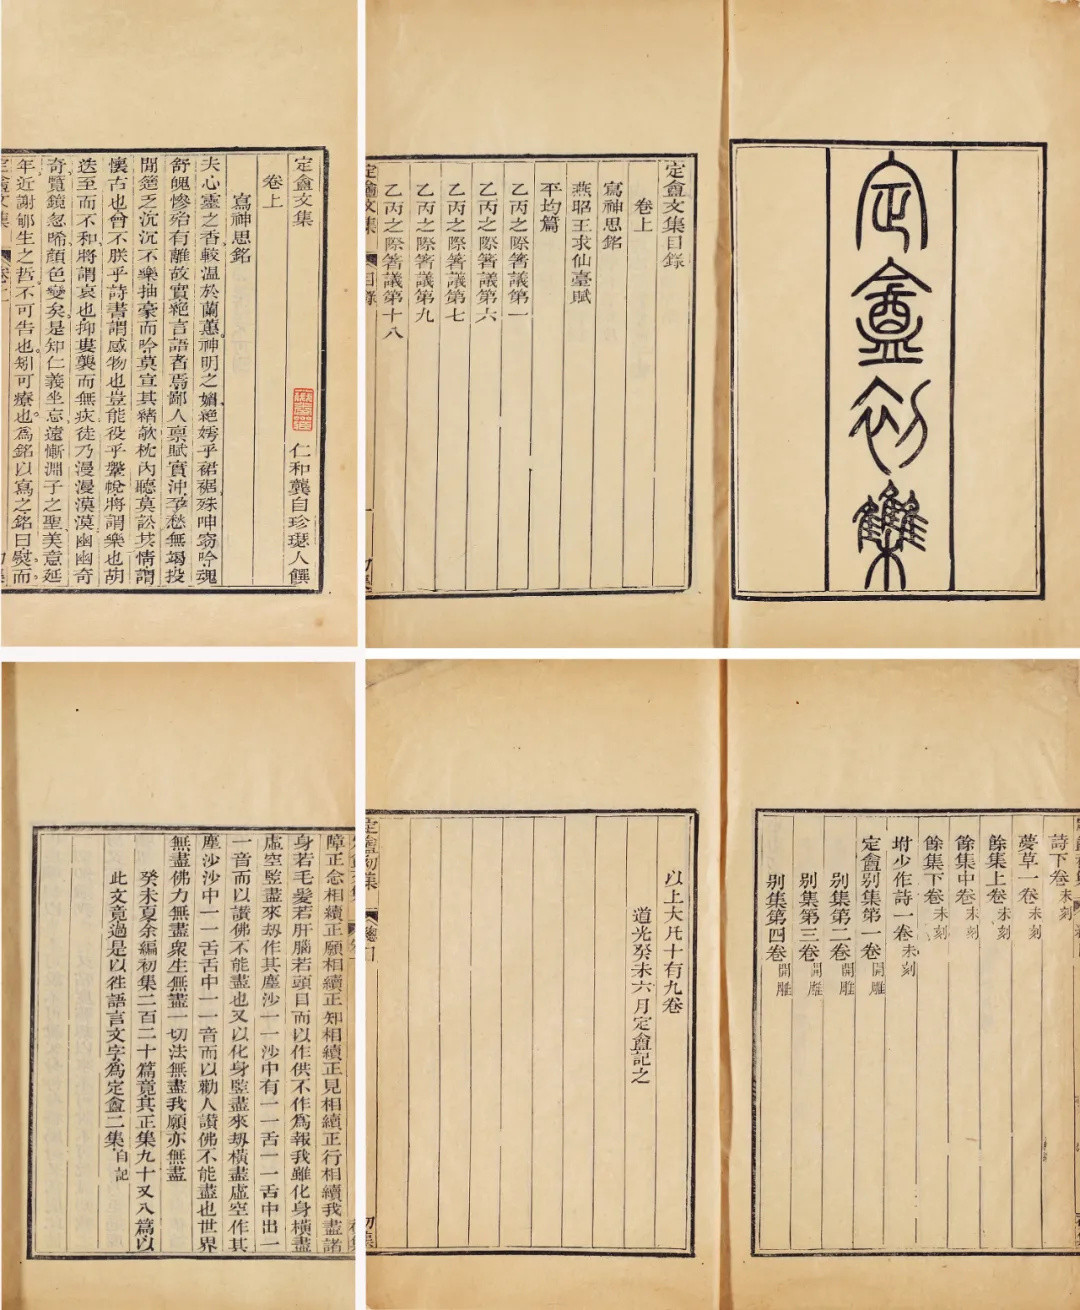 定盦初集
定盦文集目錄
卷上
寫神思銘
燕昭王求仙臺賦
平均篇
乙丙之際箸議第一
乙丙之際箸議第六
乙丙之際箸議第七
乙丙之際箸議第九
乙丙之際箸議第十八
定盦文集 目錄 一 初集
定盦文集 仁和龔自珍瑟人饌
卷上
寫神思銘
夫心靈之香較溫於蘭蕙神明之媚絕嫮乎裙裾殊呻窈吟魂
舒魄慘殆有離故實絕言語者焉鄙人禀賦實沖孕愁無竭投
閒簉乏沉沉不樂抽豪而吟莫宣其緒欹枕內聽莫訟其情謂
懷古也曾不朕乎詩書謂感物也豈能役乎鞶帨將謂樂也胡
迭至而不和將謂哀也抑屢襲而無疾徒乃漫漫漠漠幽幽奇
奇覽鏡忽唏顏色變矣是知仁義坐忘遠慚淵子之聖美意延
年近謝郇生之哲不可告也矧可療也為銘以寫之銘曰熨而
定盦文集 卷上 初集
詩下卷未刻
夢草一卷未刻
餘集上卷未刻
餘集中卷未刻
餘集下卷未刻
坿少作詩一卷未刻
定盦別集第一卷開雕
別集第二卷開雕
別集第三卷開雕
別集第四卷開雕
以上大凡十有九卷
道光癸未六月定盦記之
定盦初集 總目 初集
障正念相續正願相續正知相續正見相續正行相續我盡諸
身若毛髮若肝腦若頭目而以作供不作為報我雖化身橫盡
虛空豎盡來刼作其塵沙一一沙中有一一舌一一舌中出一
一音而以讚佛不能盡也又以化身豎盡來刼橫盡虛空作其
塵沙沙中一一舌舌中一一音而以勸人讚佛不能盡也世界
無盡佛力無盡衆生無盡一切法無盡我願亦無盡
癸未夏余編初集二百二十篇竟其正集九十又八篇以
此文竟過是以徃語言文字為定盦二集自記